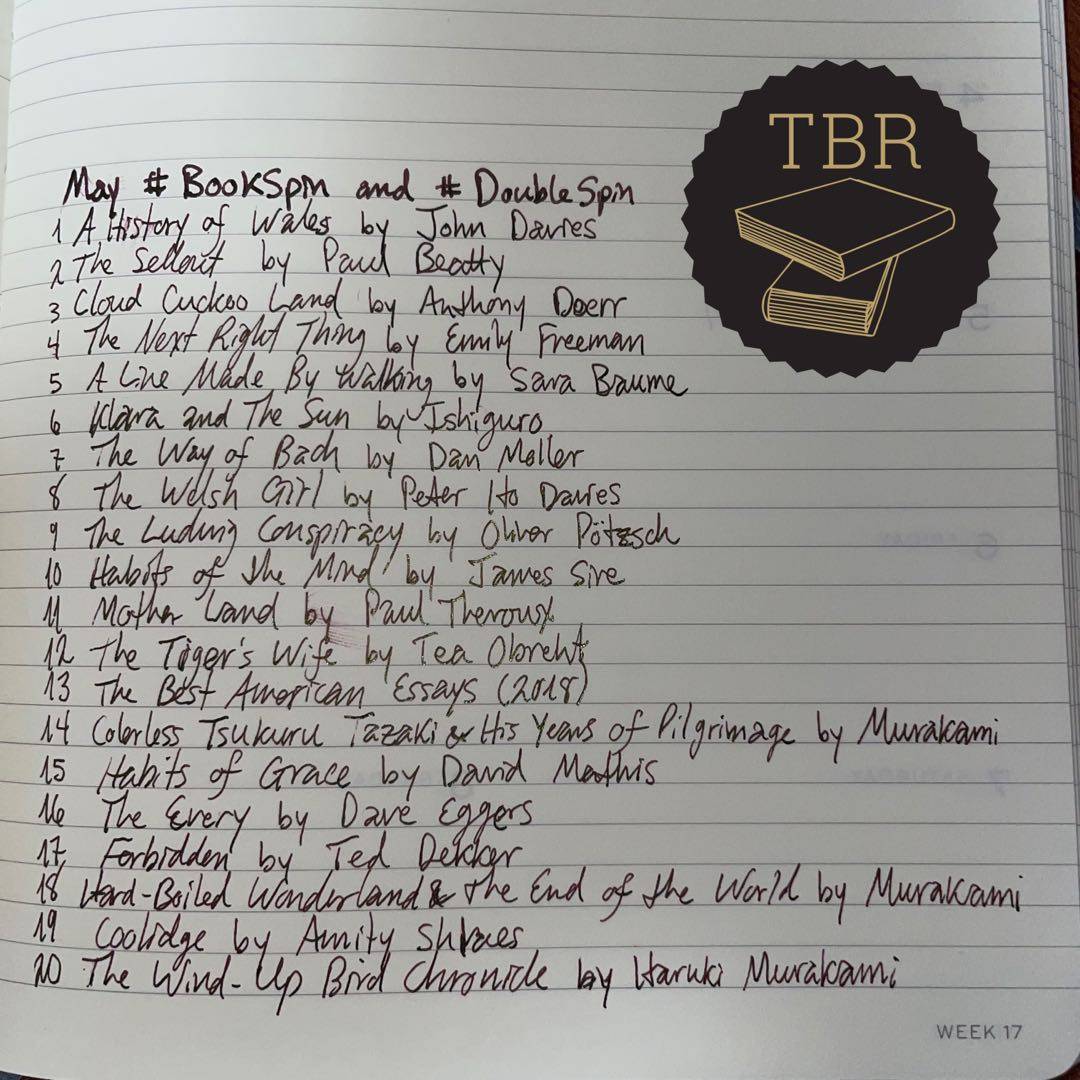 TBR
May # BookSpin and # DoubleSpin
1 A History of Wales by John Davies
2 The Sellout by Paul Beatty
3 Cloud Cuckoo Land by Anthony Doerr
4 The Next Right Thing by Emily Freeman
5 A Line Made By Walking by Sara Baume
6 Klara and The Sun by Ishiguro
7 The Way of Bach by Dan Moller
8 The Welsh Girl by Peter Ho Davies
9 The Ludwig Conspiracy by Oliver Pötzsch
10 Habits of the Mind by James Sire
11 Mother Land by Paul Theroux
12 The Tiger's Wife by Tea Obreht
13 The Best American Essays (2018)
14 Colorless Tsukuru Tazaki & His Years of Pilgrimage by Murakami
15 Habits of Grace by David Mathis
16 The Every by Dave Eggers
17 Forbidden by Ted Dekker
18 Hard-Boiled Wonderland & The End of the World by Murakami
19 Coolidge by Amity Shlaes
20 The Wind-Up Bird Chronicle by Haruki Murakami
WEEK 17